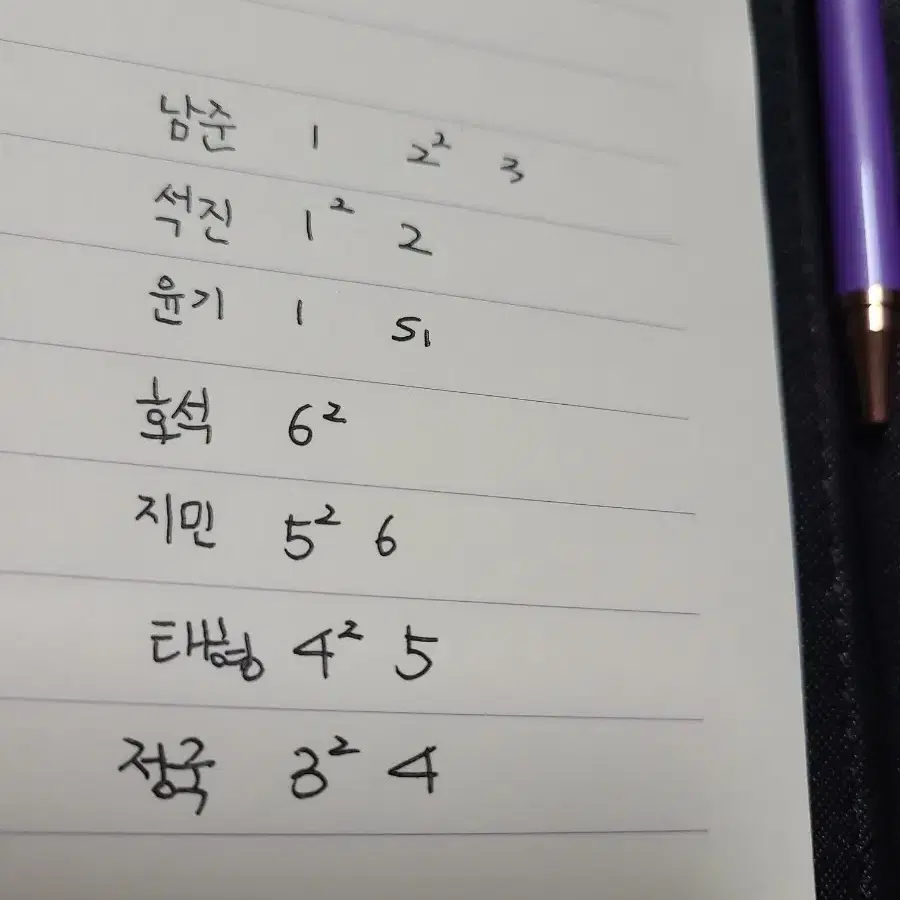 남준 1 2² 3
석진 1² 2
윤기 1 S1
호석 6²
지민 5² 6
태형 4² 5
정국 3² 4